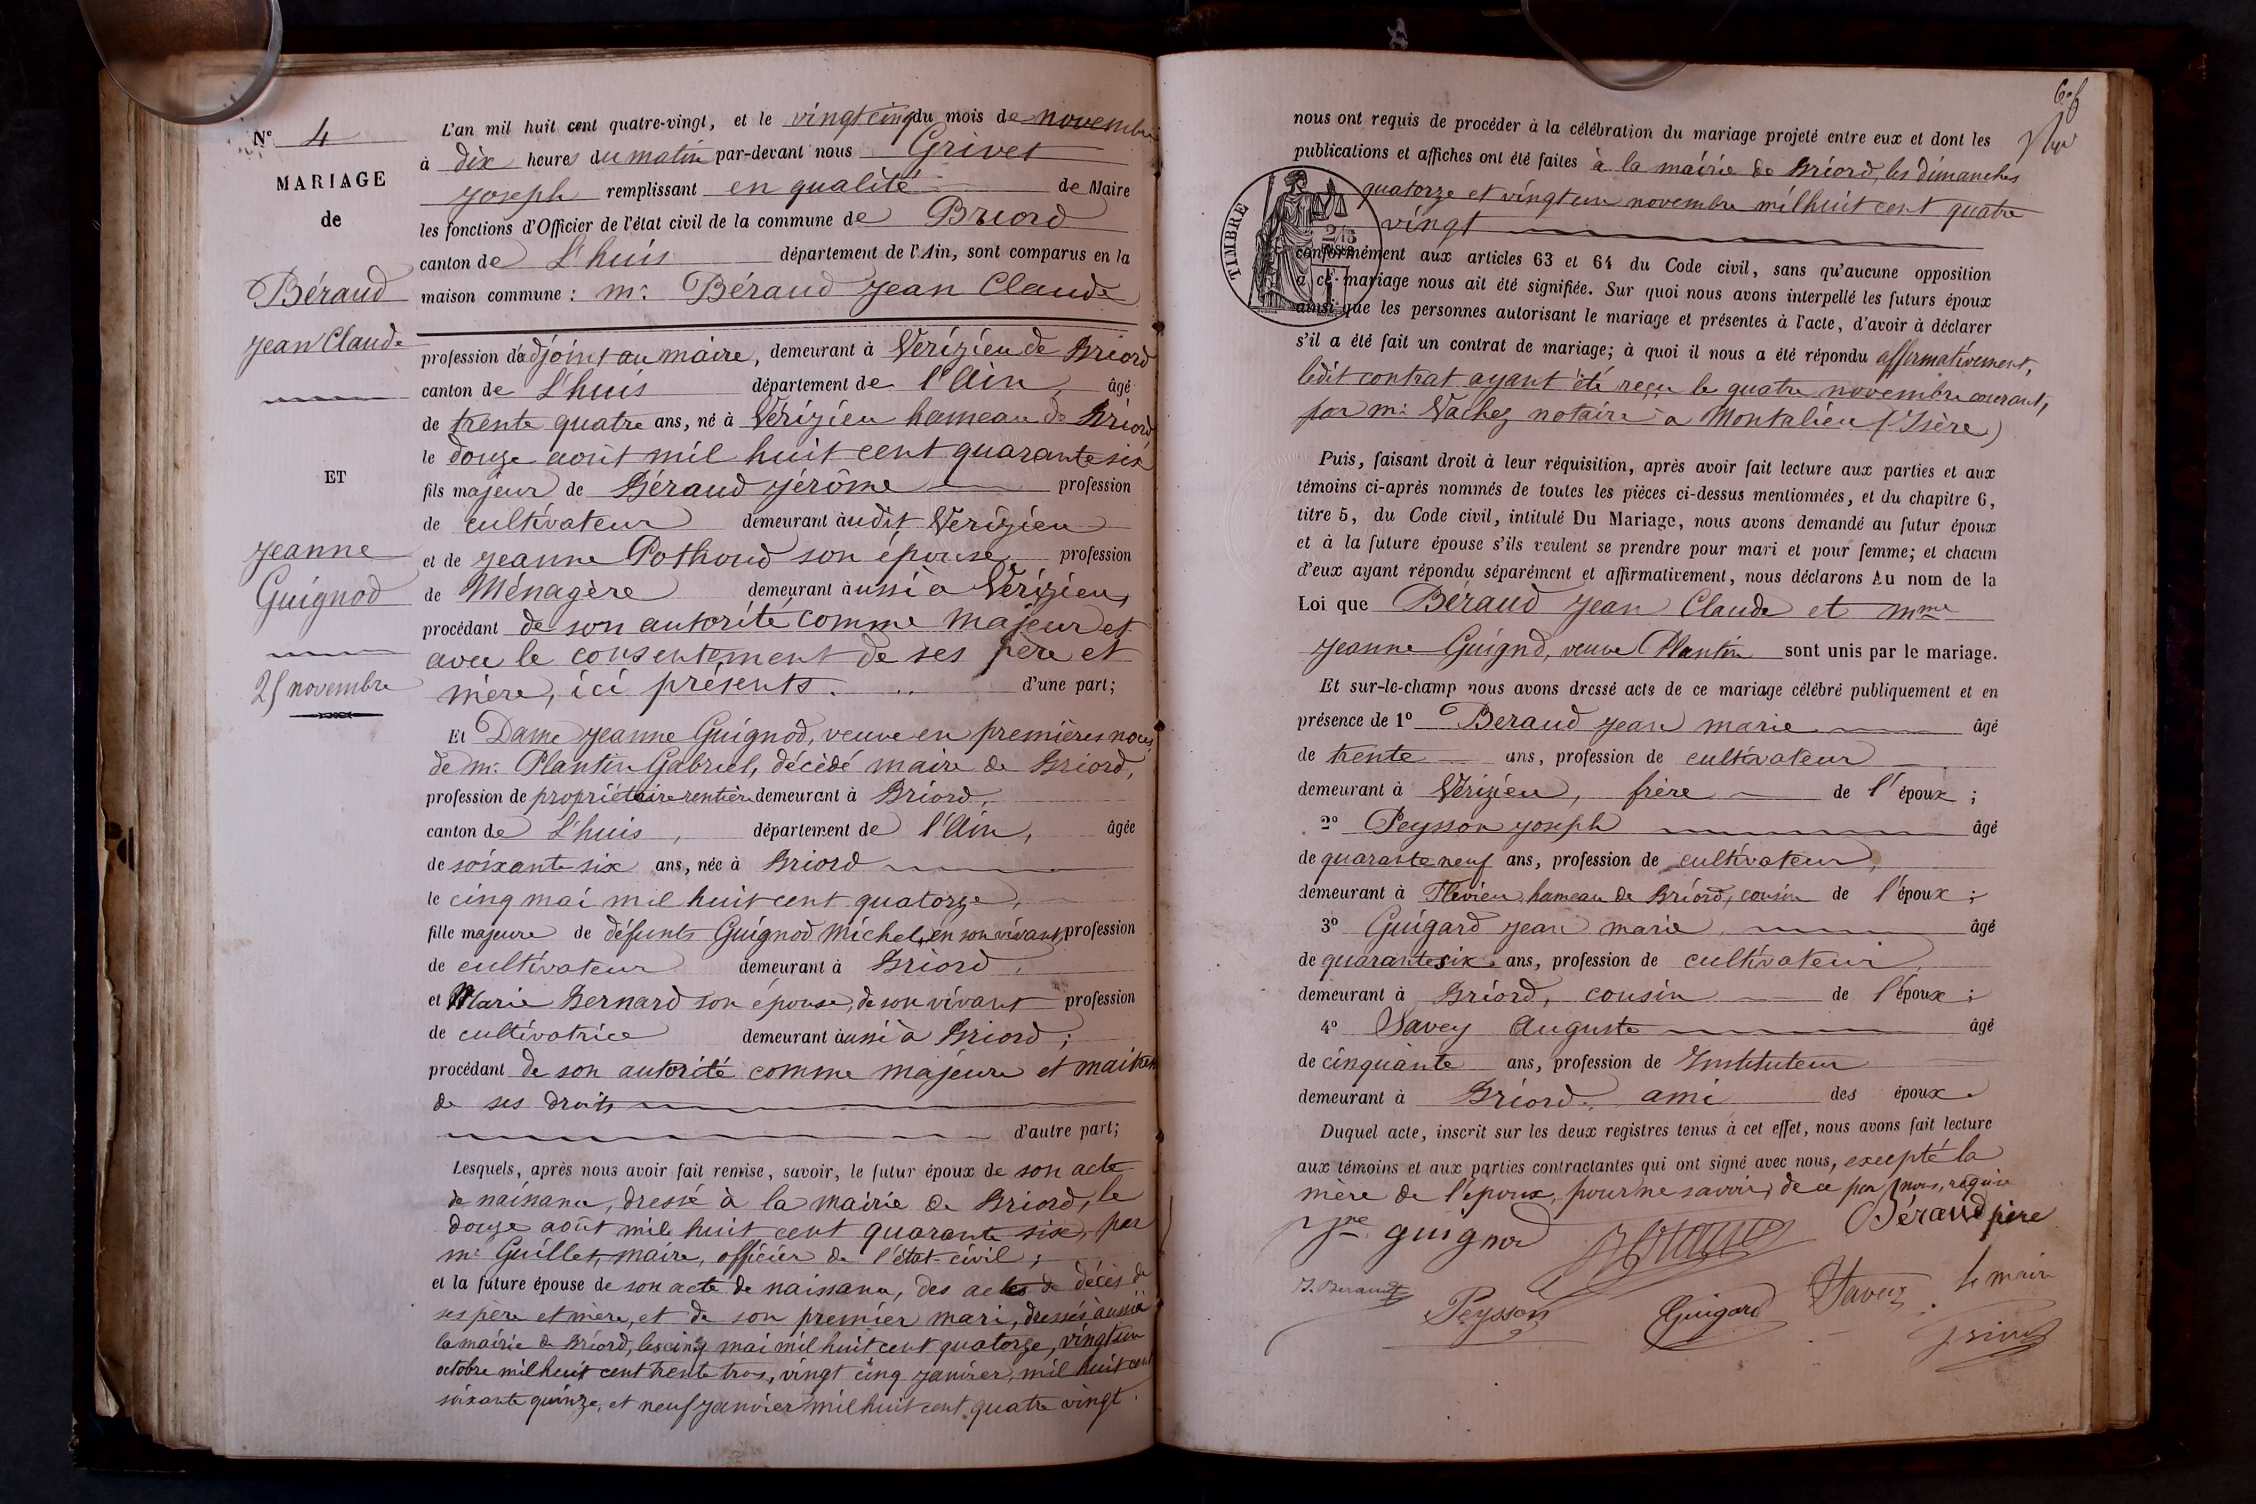 N° 4
MARIAGE
de
Béraud
Jean Claude
ET
Jeanne
Guignod
25 novembre
L'an mil huit cent quatre-vingt, et le vingt cinq du mois de novembre
à dix heures du matin par-devant nous Grivet
Joseph remplissant en qualité de Maire
les fonctions d'Officier de l'état civil de la commune de Briord
canton de L'huis département de l'Ain, sont comparus en la
maison commune : mr Béraud Jean Claude
profession d'adjoint au maire, demeurant à Vérizieu de Briord
canton de L'huis département de l'Ain, âgé
de trente quatre ans, né à Vérizieu hameau de Briord
le douze août mil huit cent quarante six
fils majeur de Béraud Jérôme profession
de cultivateur demeurant àudit Verizieu
et de Jeanne Pothoud son épouse, profession
de Ménagère demeurant àussi à Vérizieu,
procédant de son autorité comme majeur et
avec le consentement de ses père et
mère, ici présents. d'une part;
Et Dame Jeanne Guignod, veuve en premières noces
de mr Plantin Gabriel, décédé maire de Briord,
profession de propriétaire rentière demeurant à Briord,
canton de L'huis, département de l'Ain, âgée
de soixante six ans, née à Briord
le cinq mai mil huit cent quatorze,
fille majeure de défunts Guignod Michel, en son vivant, profession
de cultivateur demeurant à Briord,
et Marie Bernard son épouse, de son vivant profession
de cultivatrice demeurant àussi à Briord ;
procédant de son autorité comme majeure et maitresse
de ses droits
d'autre part;
Lesquels, après nous avoir fait remise, savoir, le futur époux de son acte
de naissance, dressé à la mairie de Briord, le
douze août mil huit cent quarante six, par
mr Guillet, maire, officier de l'état-civil ;
et la future épouse de son acte de naissance, des actes de décès de
ses père et mère, et de son premier mari, dressés àussi à
la mairie de Briord, les cinq mai mil huit cent quatorze, vingt un
octobre mil huit cent trente trois, vingt cinq janvier, mil huit cent
soixante quinze, et neuf janvier mil huit cent quatre vingt.
nous ont requis de procéder à la célébration du mariage projeté entre eux et dont les
publications et affiches ont été faites à la mairie de Briord, les dimanches
quatorze et vingt un novembre mil huit cent quatre
vingt
TIMBRE
conformément aux articles 63 et 64 du Code civil, sans qu'aucune opposition
à ce mariage nous ait été signifiée. Sur quoi nous avons interpellé les futurs époux
ainsi que les personnes autorisant le mariage et présentes à l'acte, d'avoir à déclarer
s'il a été fait un contrat de mariage; à quoi il nous a été répondu affirmativement,
ledit contrat ayant été reçu le quatre novembre courant,
par mr Vachez notaire à Montalieu (Isère)
Puis, faisant droit à leur réquisition, après avoir fait lecture aux parties et aux
témoins ci-après nommés de toutes les pièces ci-dessus mentionnées, et du chapitre 6,
titre 5, du Code civil, intitulé Du Mariage, nous avons demandé au futur époux
et à la future épouse s'ils veulent se prendre pour mari et pour femme; et chacun
d'eux ayant répondu séparément et affirmativement, nous déclarons Au nom de la
Loi que Béraud Jean Claude et mme
Jeanne Guignd, veuve Plantin sont unis par le mariage.
Et sur-le-champ nous avons dressé acte de ce mariage célébré publiquement et en
présence de 1° Beraud Jean marie âgé
de trente ans, profession de cultivateur
demeurant à Vérizieu, frère de l'époux ;
2° Peysson Joseph âgé
de quarante neuf ans, profession de cultivateur,
demeurant à Flévieu hameau de Briord, cousin de l'époux ;
3° Guigard Jean marie, âgé
de quarante six ans, profession de cultivateur,
demeurant à Briord, cousin de l'époux ;
4° Savey Auguste âgé
de cinquante ans, profession de Instituteur
demeurant à Briord, ami des époux.
Duquel acte, inscrit sur les deux registres tenus à cet effet, nous avons fait lecture
aux témoins et aux parties contractantes qui ont signé avec nous, excepté la
mère de l'époux, pour ne savoir, de ce par nous, requise
Jne guignod
Béraud père
J. Beraud
Peysson
Guigard
Savey
le maire
Grivet